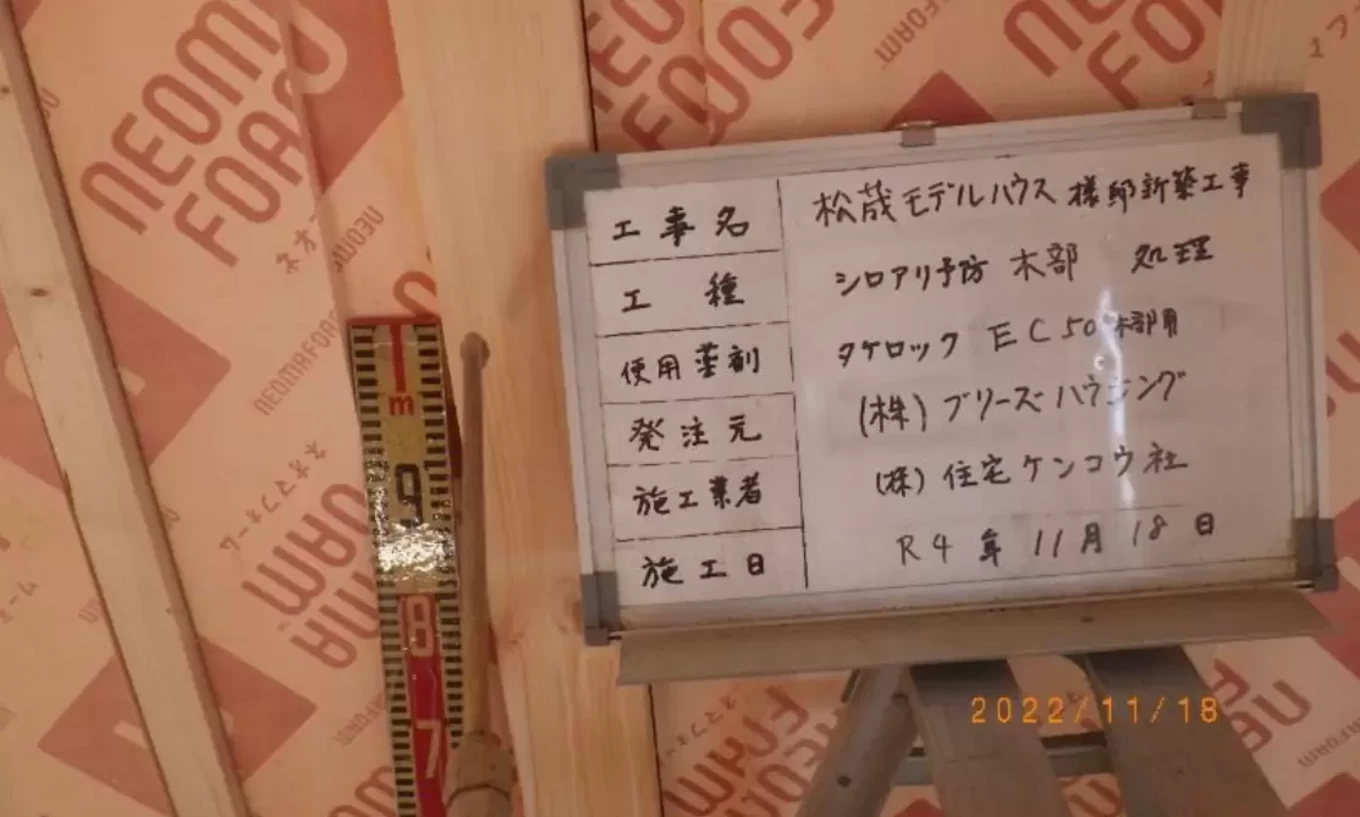 NEOMA
FOAM
ネオマフォーム
NEOMAFOAM
工事名 松茂モデルハウス 様邸新築工事
工種 シロアリ予防 木部 処理
使用薬剤 タケロック EC50木部用
発注元 (株)ブリーズハウジング
施工業者 (株)住宅ケンコウ社
施工日 R4年 11月 18日
1
m
9
8
7
2022/11/18